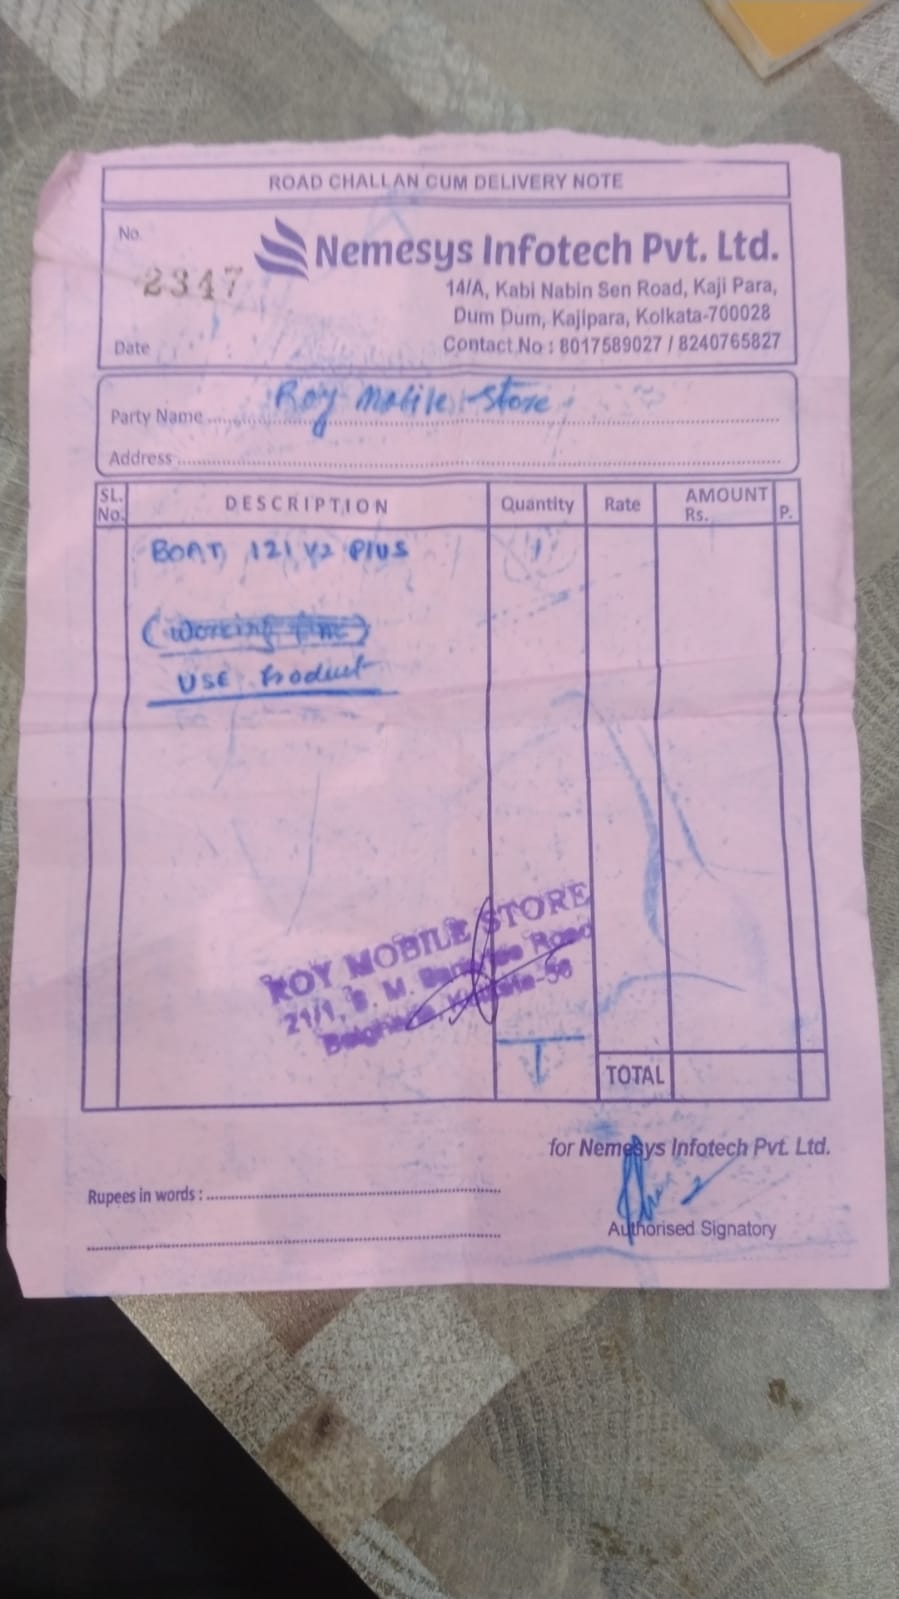 ROAD CHALLAN CUM DELIVERY NOTE
No.
2347
Nemesys Infotech Pvt. Ltd.
14/A, Kabi Nabin Sen Road, Kaji Para,
Dum Dum, Kajipara, Kolkata-700028
Contact No : 8017589027 / 8240765827
Date
Party Name Roy Mobile Store
Address
SL. No. DESCRIPTION Quantity Rate AMOUNT Rs. P.
BOAT 121 V2 PLUS 1
(Working fine)
USE Product
ROY MOBILE STORE
21/1, B. M. Banerjee Road
Kolkata-56
1
TOTAL
for Nemesys Infotech Pvt. Ltd.
Rupees in words :
Authorised Signatory